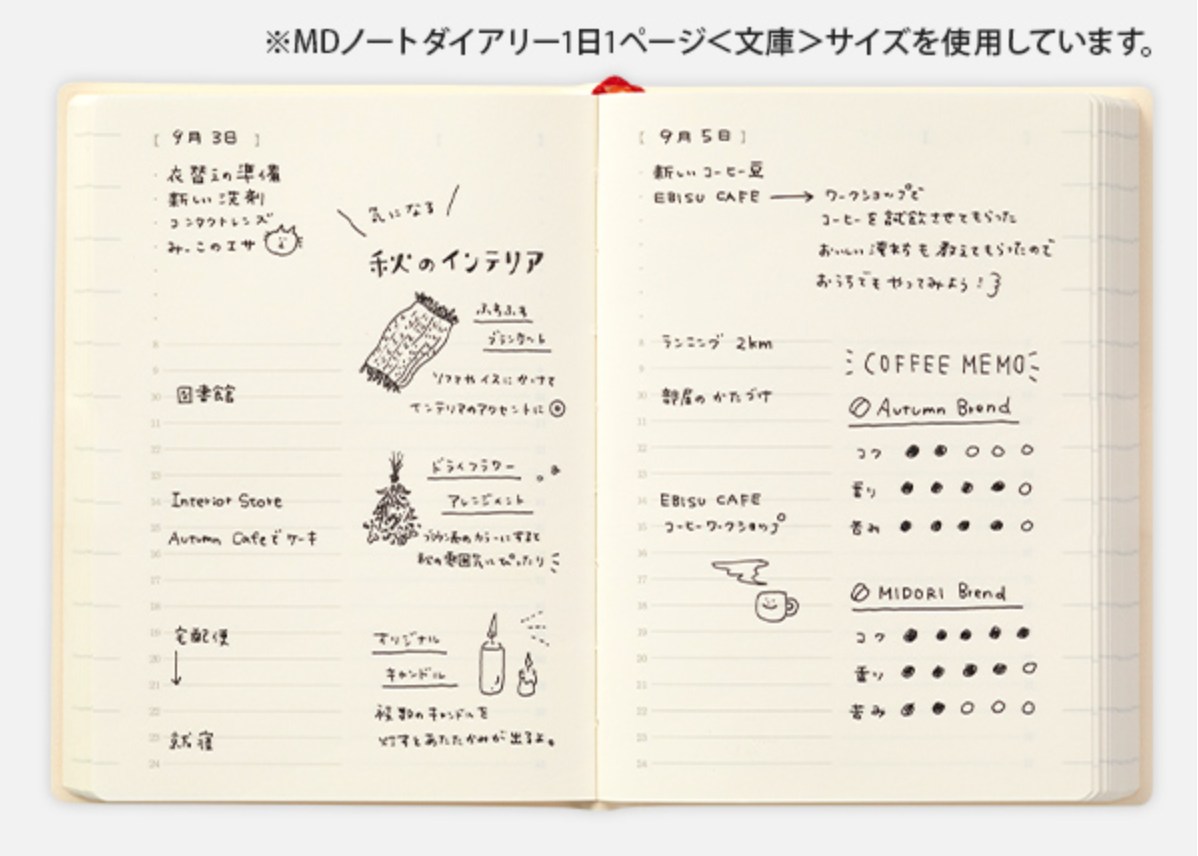 ※MDノートダイアリー1日1ページ＜文庫＞サイズを使用しています。
[ 9月3日 ]
衣替えの準備
新しい洗剤
コンタクトレンズ
みーこのエサ
\ 気になる /
秋のインテリア
ふちふち
ブランケット
ソファやイスにかけて
インテリアのアクセントに◎
8
9
10 図書館
11
12
13
14 Interior Store
15 Autumn Cafeでケーキ
16
17
18
19 宅配便
20 ↓
21
22
23 就寝
24
ドライフラワー
アレンジメント
ブラウン系のカラーにすると
秋の雰囲気にぴったり
オリジナル
キャンドル
複数のキャンドルを
灯すとあたたかみが出るよ。
[ 9月5日 ]
新しいコーヒー豆
EBISU CAFE → ワークショップで
コーヒーを試飲させてもらった
おいしい淹れ方も教えてもらったので
おうちでもやってみよう!
8 ランニング 2km
9
10 部屋のかたづけ
11
12
13
14 EBISU CAFE
15 コーヒーワークショップ
16
17
18
19
20
21
22
23
24
COFFEE MEMO
Autumn Brend
コク ●●○○○
香り ●●●●○
苦み ●●●●○
MIDORI Brend
コク ●●●●●
香り ●●●●○
苦み ●●○○○